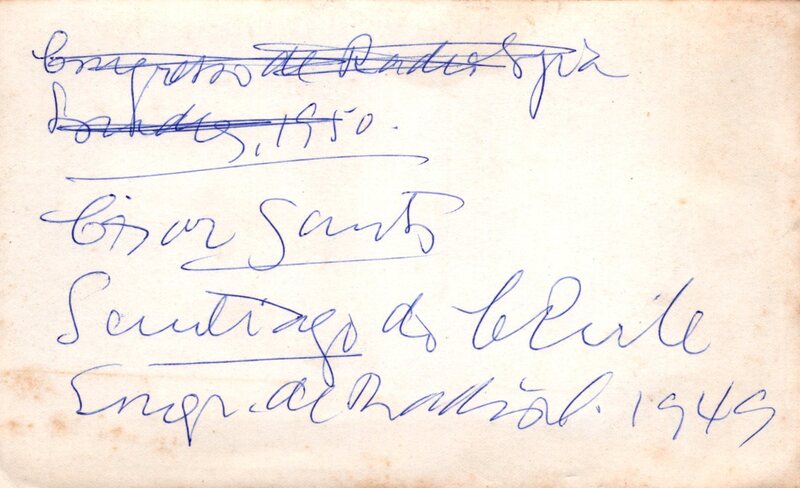 Congresso de Radiologia
Londres, 1950.
Cesar Santos
Santiago do Chile
Congr. de Radiol. 1949